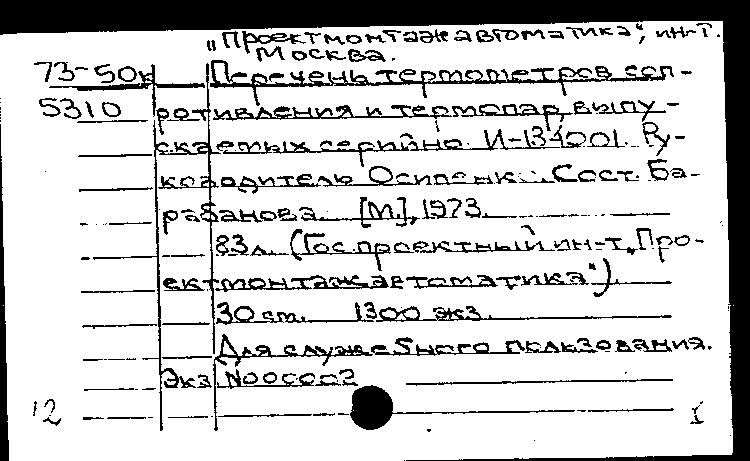 „Проектмонтажавтоматика", ин-т.
Москва.
73-50к Перечень термометров соп-
5310 ротивления и термопар, выпу-
скаемых серийно. И-134001. Ру-
ководитель Осипенк. Сост. Ба-
рабанова. [М.], 1973.
83л. (Гос проектный ин-т „Про-
ектмонтажавтоматика").
30 см. 1300 экз.
Для служебного пользования.
Экз N000002
12 I